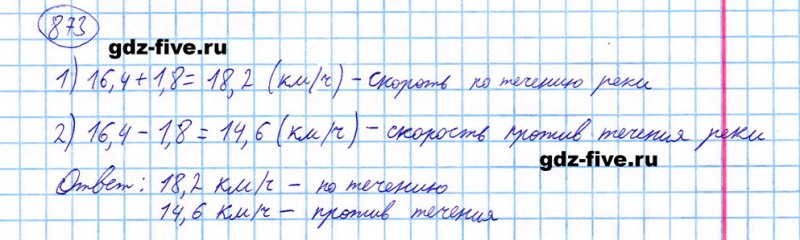 873
gdz-five.ru
1) 16,4 + 1,8 = 18,2 (км/ч) – скорость по течению реки
2) 16,4 – 1,8 = 14,6 (км/ч) – скорость против течения реки
gdz-five.ru
Ответ: 18,2 км/ч – по течению
14,6 км/ч – против течения